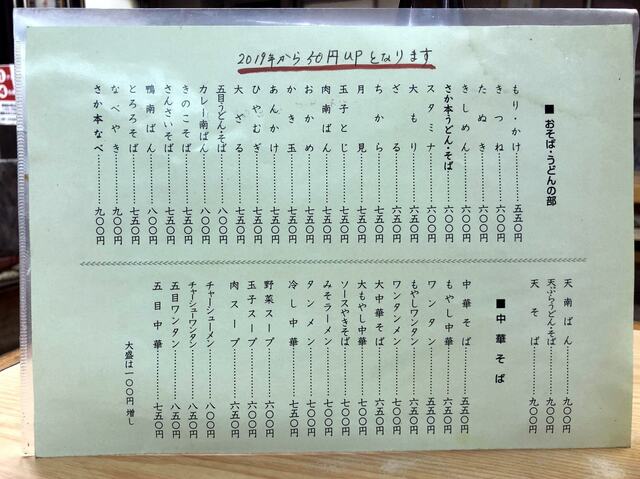 2019年から50円UPとなります
■おそば・うどんの部
もり・かけ…………五五〇円
きつね…………六〇〇円
たぬき…………六〇〇円
きしめん…………六〇〇円
さか本うどん・そば…………六〇〇円
スタミナ…………六〇〇円
大もり…………六五〇円
ざる…………六五〇円
ちから…………七五〇円
月見…………七五〇円
玉子とじ…………七五〇円
肉南ばん…………七五〇円
おかめ…………七五〇円
かき玉…………七五〇円
あんかけ…………七五〇円
ひやむぎ…………七五〇円
大ざる…………七五〇円
五目うどんそば…………八〇〇円
カレー南ばん…………八〇〇円
きのこそば…………七五〇円
さんさいそば…………七五〇円
鴨南ばん…………八〇〇円
とろろそば…………七五〇円
なべやき…………九〇〇円
さか本なべ…………九〇〇円
天南ばん…………九〇〇円
天ぷらうどんそば…………九〇〇円
天そば…………九〇〇円
■中華そば
中華そば…………五五〇円
もやし中華…………六〇〇円
ワンタン…………五五〇円
もやしワンタン…………六〇〇円
ワンタンメン…………七〇〇円
大中華そば…………六五〇円
大もやし中華…………七〇〇円
ソースやきそば…………七〇〇円
みそラーメン…………七〇〇円
タンメン…………七〇〇円
冷し中華…………七五〇円
野菜スープ…………六〇〇円
玉子スープ…………六〇〇円
肉スープ…………六五〇円
チャーシューメン…………八〇〇円
チャーシューワンタン…………八五〇円
五目ワンタン…………八五〇円
五目中華…………七五〇円
大盛は一〇〇円増し